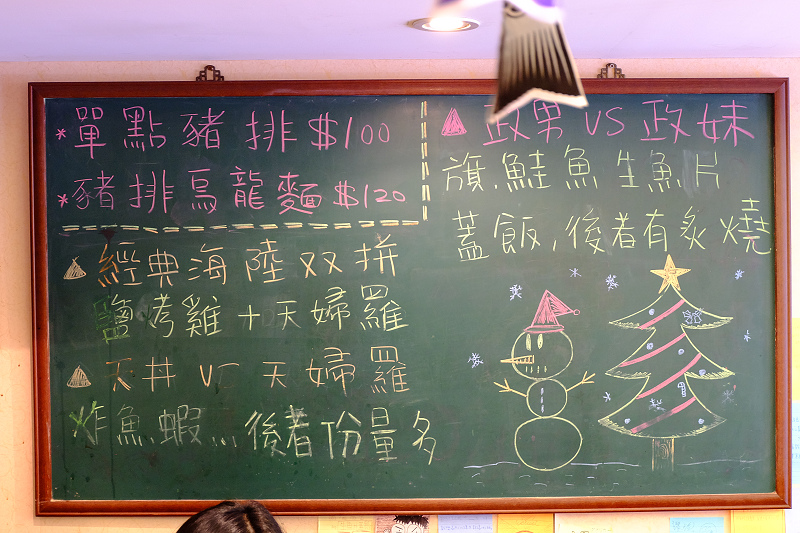 *單點豬排$100
*豬排烏龍麵$120
經典海陸双拼
鹽考雞+天婦羅
天丼 vs 天婦羅
炸魚.蝦...後者份量多
政男 vs 政妹
旗.鮭魚生魚片
蓋飯,後者有炙燒